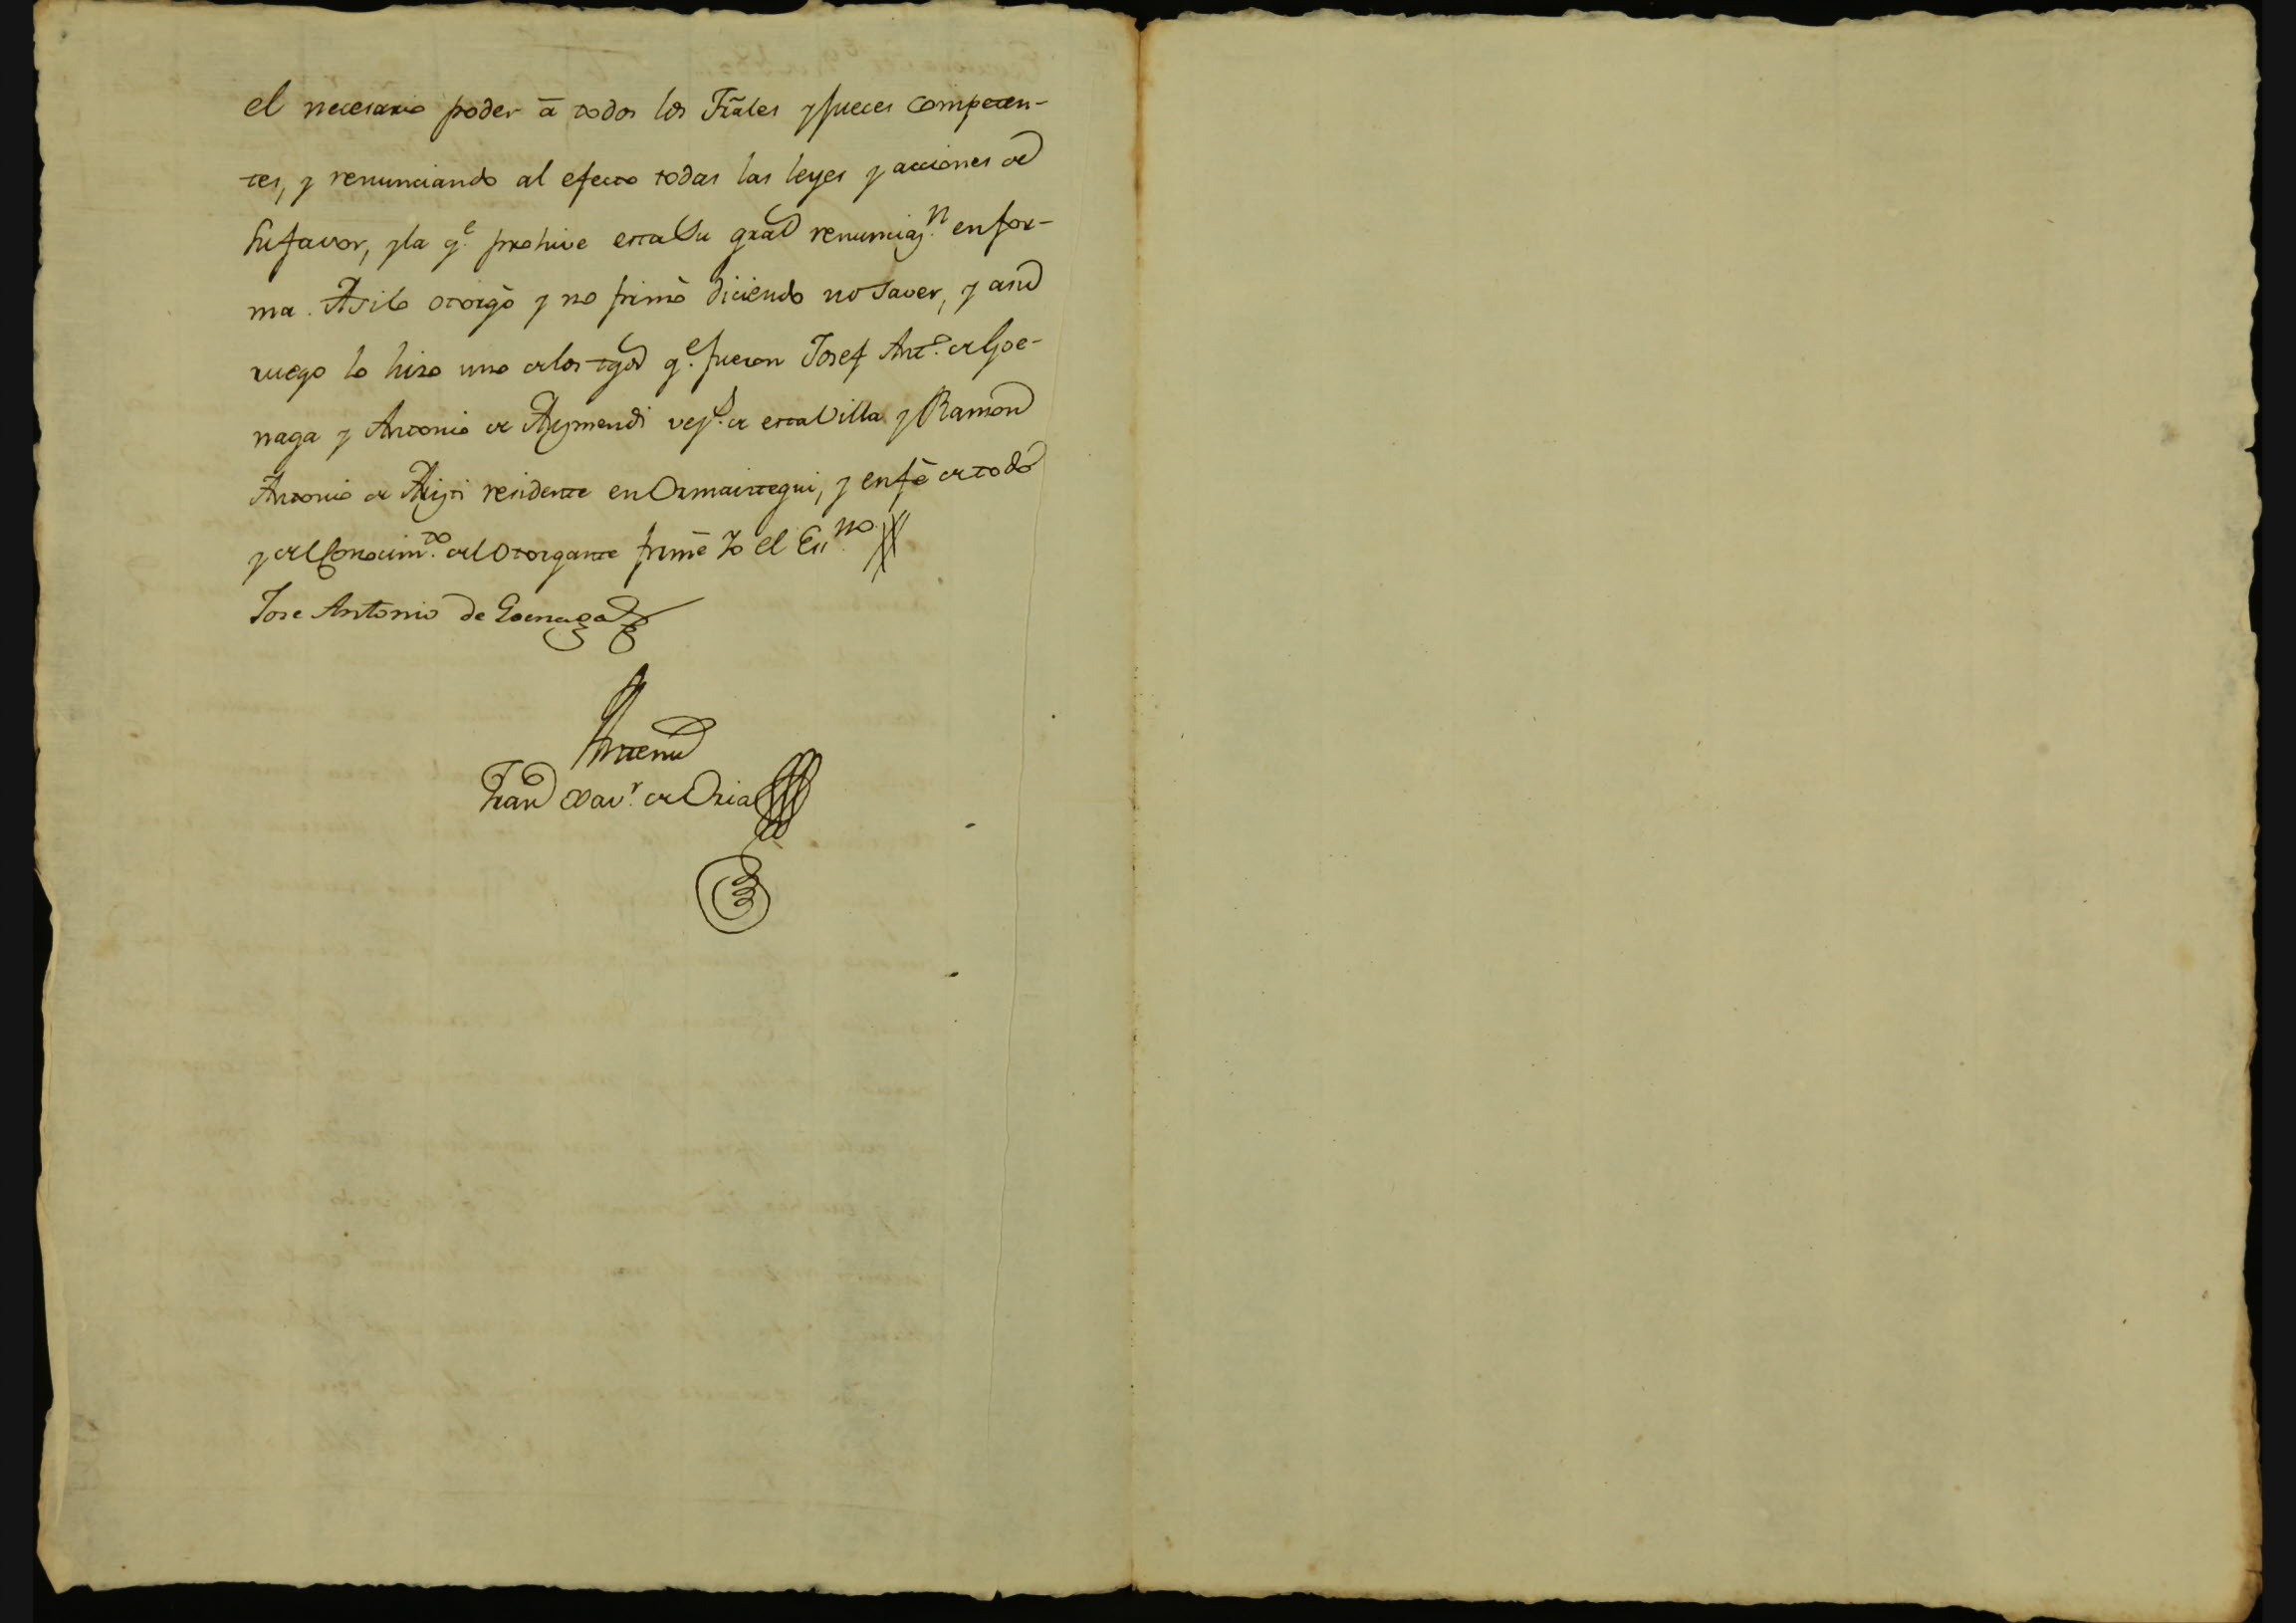 el necesario poder â todos los Trâles y Jueces competen-
tes, y renunciando al efecto todas las leyes y acciones de
su favor, y la q.e prohive esta su gral renunciaz.n en for-
ma. Asi lo otorgò y no firmò diciendo no saver, y a su
ruego lo hizo uno de los tgos q.e fueron Josef Ant.o de Goe-
naga y Antonio de vez.s de esta Villa y Ramon
Antonio de residente en Ormaiztegui, y en fè de todo
y del conocim.to del otorgante firmè Yo el Ess.no
Jose Antonio de Goenaga
Ante mi
Fran.co Xav.r de Oria